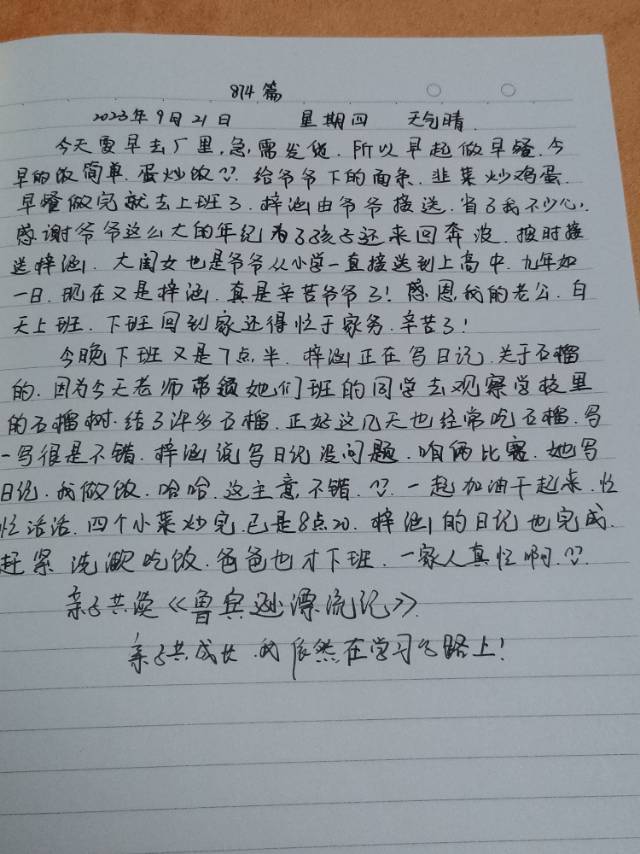 874篇
2023年9月21日 星期四 天气晴.
今天要早去厂里,急需发货.所以早起做早餐.今
早的饭简单.蛋炒饭??.给爷爷下的面条.韭菜炒鸡蛋.
早餐做完就去上班了.梓涵由爷爷接送.省了我不少心,
感谢爷爷这么大的年纪为了孩子还来回奔波.按时接
送梓涵.大闺女也是爷爷从小学一直接送到上高中.九年如
一日.现在又是梓涵.真是辛苦爷爷了!感恩我的老公.白
天上班.下班回到家还得忙于家务.辛苦了!
今晚下班又是7点半.梓涵正在写日记.关于石榴
的.因为今天老师带领她们班的同学去观察学校里
的石榴树.结了许多石榴.正好这几天也经常吃石榴.写
一写很是不错.梓涵说写日记没问题.咱俩比赛.她写
日记.我做饭.哈哈.这主意不错.??.一起加油干起来.忙
忙活活.四个小菜炒完.已是8点20.梓涵的日记也完成.
赶紧洗漱吃饭.爸爸也才下班.一家人真忙啊.??.
亲子共读《鲁宾逊漂流记》.
亲子共成长.我依然在学习的路上!